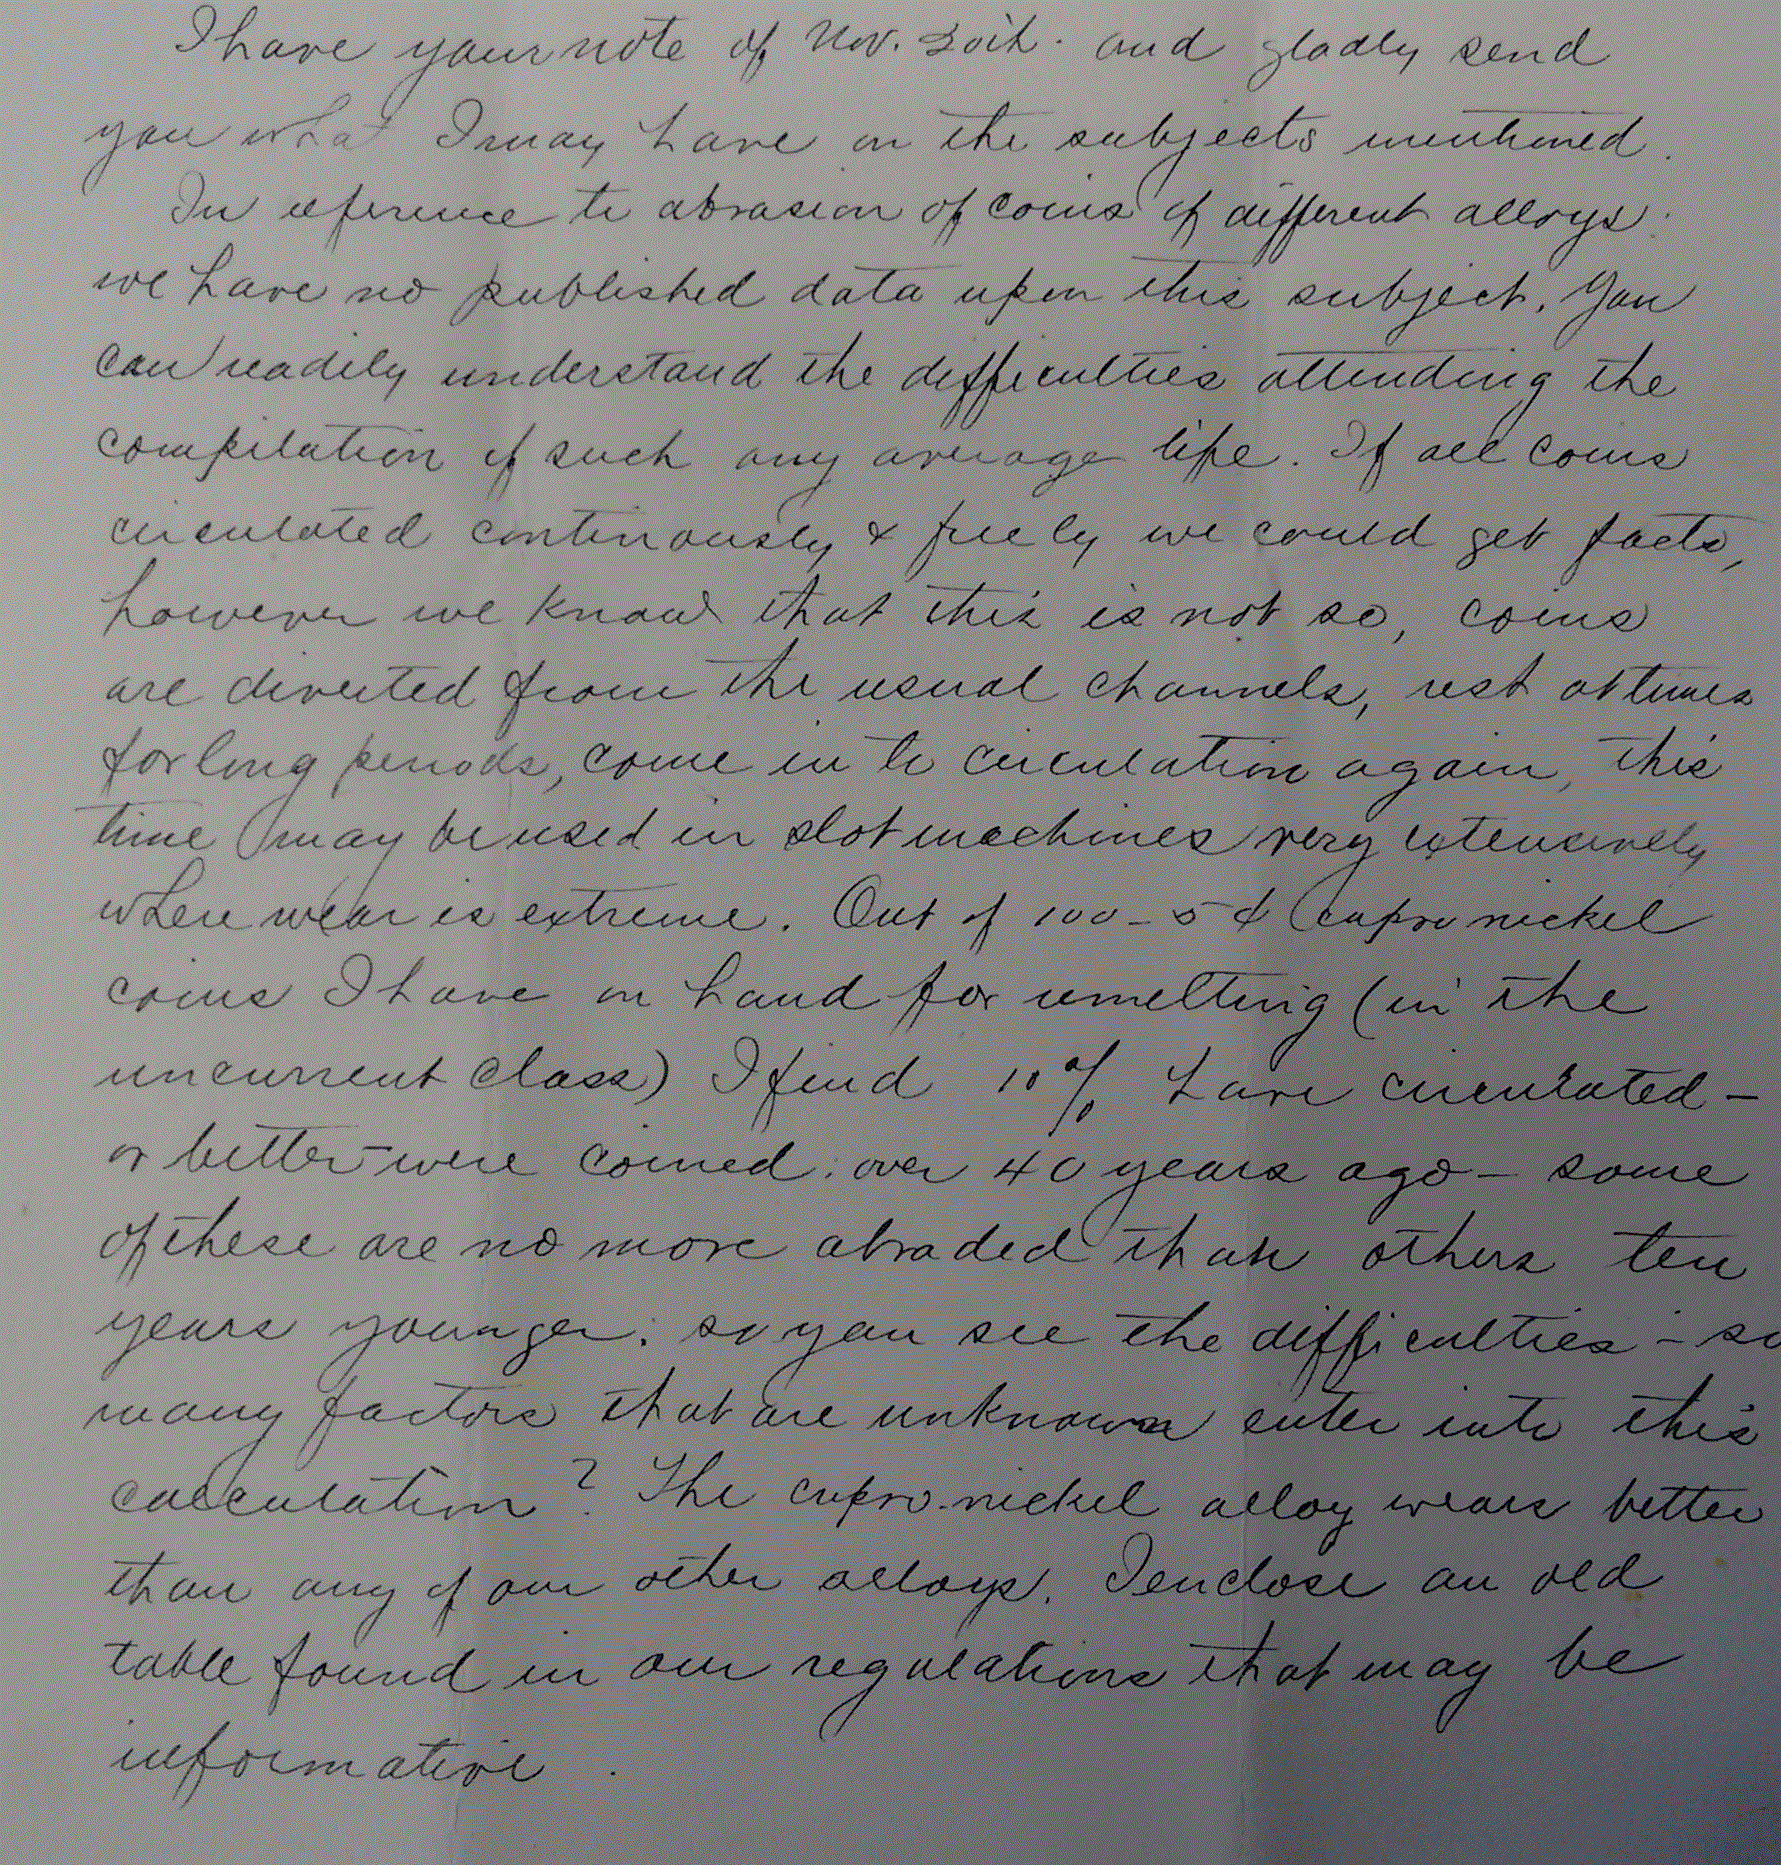 I have your note of Nov. 20th. and gladly send
you what I may have on the subjects mentioned.
In reference to abrasion of coins of different alloys:
we have no published data upon this subject. You
can readily understand the difficulties attending the
compilation of such any average life. If all coins
circulated continously & freely we could get facts,
however we know that this is not so, coins
are diverted from the usual channels, rest at times
for long periods, come in to circulation again, this
time may be used in slot machines very extensively
where wear is extreme. Out of 100 - 5 ¢ Cupro nickel
coins I have on hand for remelting (in the
uncurrent class) I find 10 % have circulated -
or better - were coined: over 40 years ago - some
of these are no more abraded than others ten
years younger: so you see the difficulties - so
many factors that are unknown enter into this
calculation? The cupro-nickel alloy wears better
than any of our other alloys. I enclose an old
table found in our regulations that may be
informative.